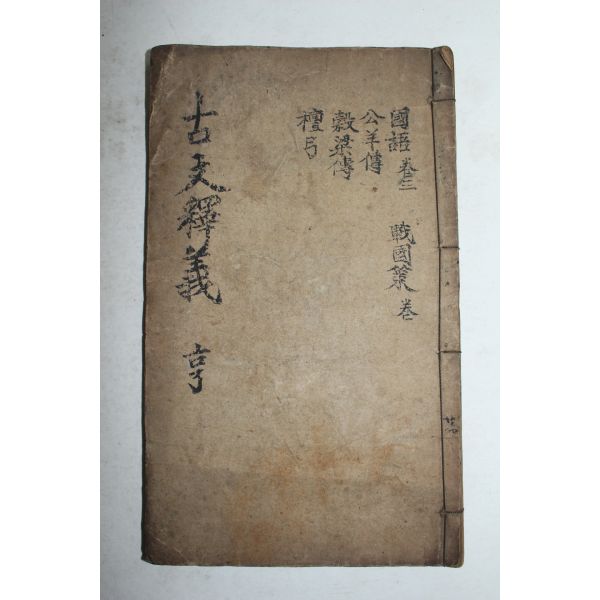 國語 卷 戰國策 卷
公羊傳
穀梁傳
檀弓
古文釋義 亨